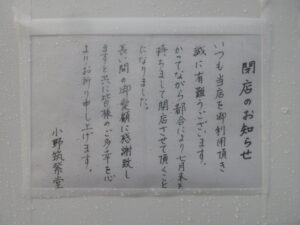 閉店のお知らせ
いつも当店を御利用頂き
誠に有難うございます。
かってながら都合により七月末を
持ちまして閉店させて頂くこと
になりました。
長い間の御愛顧に感謝致し
ますと共に皆様のご多幸を心
よりお祈り申し上げます。
小野筑紫堂